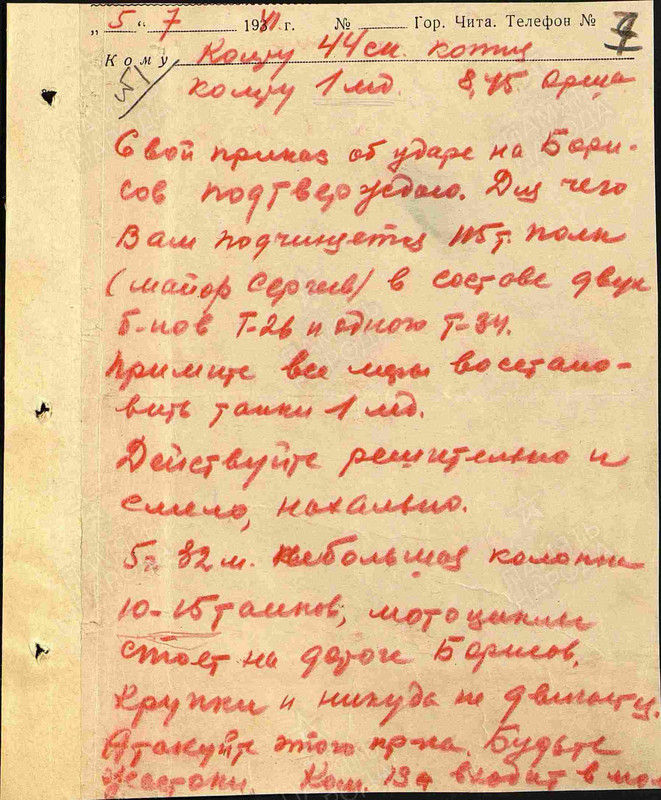 „5“ 7 1941 г. № Гор. Чита. Телефон № 7
Кому Кому 44 ск. копия
кому 1 мд. 8,45 Орша
Свой приказ об ударе на Бори-
сов подтверждаю. Для чего
Вам подчиняется 115 т. полк
(майор Сергеев) в составе двух
б-нов Т-26 и одного Т-34.
Примите все меры восстано-
вить танки 1 мд.
Действуйте решительно и
смело, нахально.
небольшая колонна
10-15 танков, мотоциклы
стоят на дороге Борисов,
Крупки и никуда не двигается.
Атакуйте этого пр-ка. Будьте
жестоки. Ком. 13а входит в мо